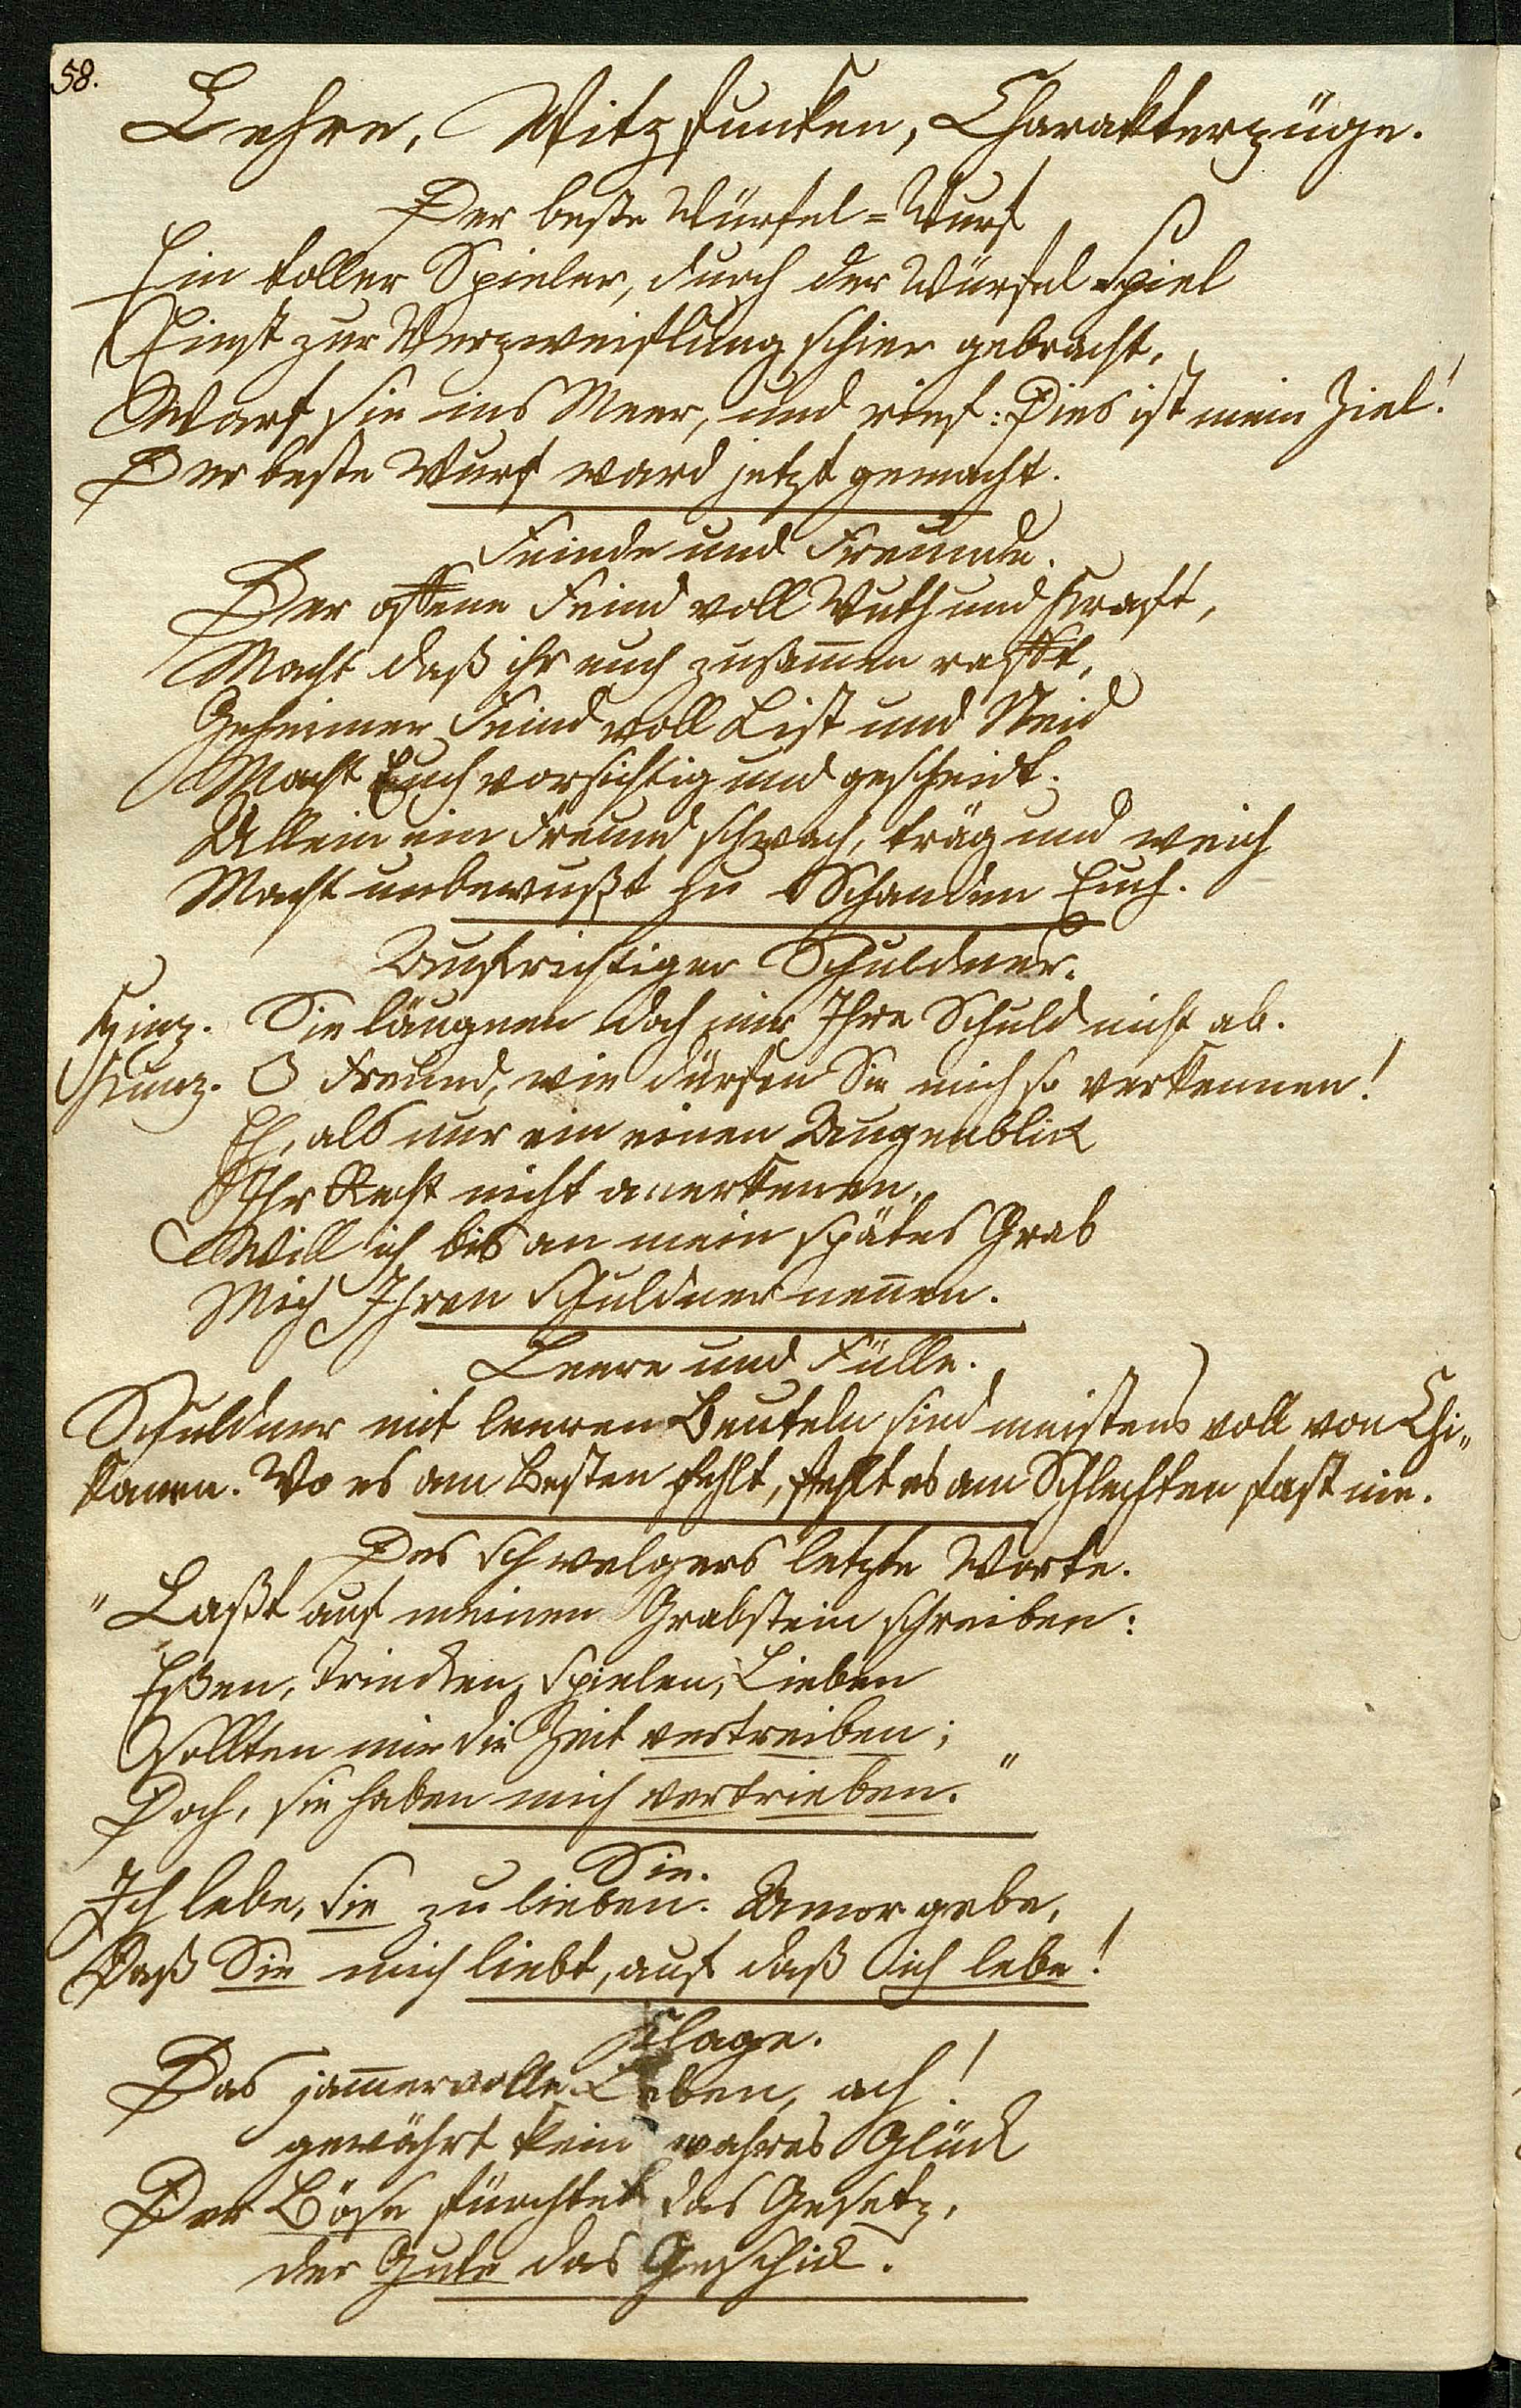 58.
Lehre, Witzfunken, Charakterzüge.
Der beste Würfel=Wurf
Ein toller Spieler, durch der Würfel=Spiel
Einst zur Verzweiflung schier gebracht,
Warf sie ins Meer, und rief: Dies ist mein Ziel!
Der beste Wurf ward jetzt gemacht.
Feinde und Freunde.
Der offene Feind voll Wuth und Kraft,
Macht daß ihr euch zusam̅en rafft,
Geheimer Feind voll List und Neid
Macht Euch vorsichtig und gescheidt.
Allein ein Freund schwach, träg und weich
Macht unbewußt zu Schanden Euch.
Aufrichtiger Schuldner.
Hinz. Sie läugnen doch mir Ihre Schuld nicht ab.
Kunz. O Freund, wie dürfen Sie mich so verkennen!
Eh, als nur ein einen Augenblick
Ihr Recht nicht anerkennen,
Will ich bis an mein spätes Grab
Mich Ihren Schuldner nen̅en.
Leere und Fülle.
Schuldner mit leeren Beuteln sind meistens voll von Chi„
kanen. Wo es am Besten fehlt, fehlt es am Schlechten fast nie.
Des Schwelgers letzte Worte.
"Laßt auf meinen Grabstein schreiben:
Eßen, Trincken, Spielen, Lieben
Sollten mir die Zeit vertreiben;
Doch, sie haben mich vertrieben."
Sie.
Ich lebe, sie zu lieben. Amor gebe,
Daß Sie mich liebt, auf daß ich lebe!
Klage.
Das jam̅ervolle Leben, ach!
gewährt kein wahres Glück
Der Böse fürchtet das Gesetz,
der Gute das Geschick.